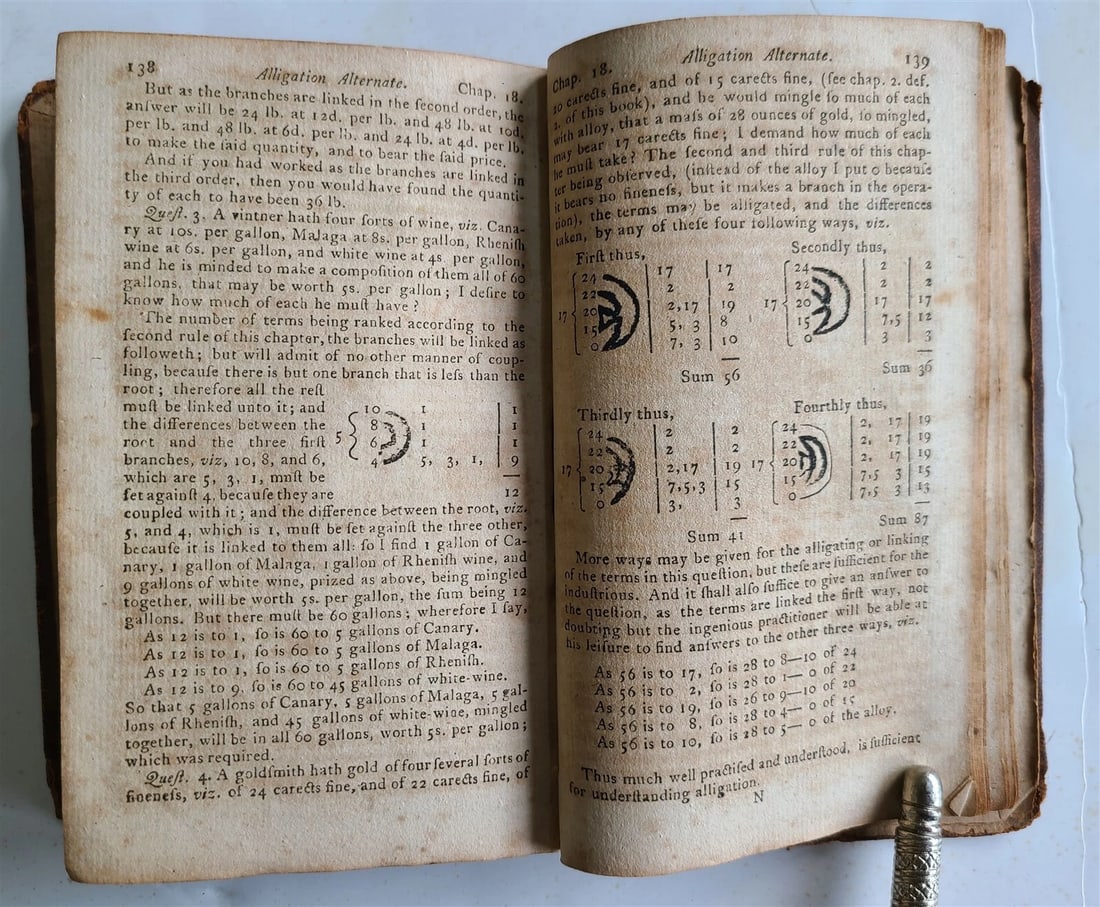 138 Alligation Alternate. Chap. 18.
But as the branches are linked in the ſecond order, the
anſwer will be 24 lb. at 12d. per lb. and 48 lb. at 10d.
per lb. and 48 lb. at 6d. per lb. and 24 lb. at 4d. per lb.
to make the ſaid quantity, and to bear the ſaid price.
And if you had worked as the branches are linked in
the third order, then you would have found the quanti-
ty of each to have been 36 lb.
Queſt. 3. A vintner hath four ſorts of wine, viz. Cana-
ry at 10s. per gallon, Malaga at 8s. per gallon, Rheniſh
wine at 6s. per gallon, and white wine at 4s. per gallon,
and he is minded to make a compoſition of them all of 60
gallons, that may be worth 5s. per gallon; I deſire to
know how much of each he muſt have?
The number of terms being ranked according to the
ſecond rule of this chapter, the branches will be linked as
followeth; but will admit of no other manner of coup-
ling, becauſe there is but one branch that is leſs than the
root; therefore all the reſt
muſt be linked unto it; and
the differences between the
root and the three firſt
branches, viz, 10, 8, and 6,
which are 5, 3, 1, muſt be
ſet againſt 4, becauſe they are
5 { 10 1 | 1
8 1 | 1
6 1 | 1
4 5, 3, 1, | 9
12
coupled with it; and the difference between the root, viz.
5, and 4, which is 1, muſt be ſet againſt the three other,
becauſe it is linked to them all: ſo I find 1 gallon of Ca-
nary, 1 gallon of Malaga, 1 gallon of Rheniſh wine, and
9 gallons of white wine, prized as above, being mingled
together, will be worth 5s. per gallon, the ſum being 12
gallons. But there muſt be 60 gallons; wherefore I ſay,
As 12 is to 1, ſo is 60 to 5 gallons of Canary.
As 12 is to 1, ſo is 60 to 5 gallons of Malaga.
As 12 is to 1, ſo is 60 to 5 gallons of Rheniſh.
As 12 is to 9, ſo is 60 to 45 gallons of white-wine.
So that 5 gallons of Canary, 5 gallons of Malaga, 5 gal-
lons of Rheniſh, and 45 gallons of white-wine, mingled
together, will be in all 60 gallons, worth 5s. per gallon;
which was required.
Queſt. 4. A goldſmith hath gold of four ſeveral ſorts of
fineneſs, viz. of 24 carects fine, and of 22 carects fine, of
Chap. 18. Alligation Alternate. 139
20 carects fine, and of 15 carects fine, (ſee chap. 2. def.
2. of this book), and he would mingle ſo much of each
with alloy, that a maſs of 28 ounces of gold, ſo mingled,
may bear 17 carects fine; I demand how much of each
he muſt take? The ſecond and third rule of this chap-
ter being obſerved, (inſtead of the alloy I put 0 becauſe
it bears no fineneſs, but it makes a branch in the opera-
tion), the terms may be alligated, and the differences
taken, by any of theſe four following ways, viz.
Firſt thus,
17 { 24 | 17 | 17
22 | 2 | 2
20 | 2,17 | 19
15 | 5, 3 | 8
0 | 7, 3 | 10
Sum 56
Secondly thus,
17 { 24 | 2 | 2
22 | 2 | 2
20 | 17 | 17
15 | 7,5 | 12
0 | 3 | 3
Sum 36
Thirdly thus,
17 { 24 | 2 | 2
22 | 2 | 2
20 | 2,17 | 19
15 | 7,5,3 | 15
0 | 3, | 3
Sum 41
Fourthly thus,
17 { 24 | 2, 17 | 19
22 | 2, 17 | 19
20 | 2, 17 | 19
15 | 7,5 3 | 15
0 | 7,5 3 | 13
Sum 87
More ways may be given for the alligating or linking
of the terms in this queſtion, but theſe are ſufficient for the
induſtrious. And it ſhall alſo ſuffice to give an anſwer to
the queſtion, as the terms are linked the firſt way, not
doubting but the ingenious practitioner will be able at
his leiſure to find anſwers to the other three ways, viz.
As 56 is to 17, ſo is 28 to 8—10 of 24
As 56 is to 2, ſo is 28 to 1— 0 of 22
As 56 is to 19, ſo is 26 to 9—10 of 20
As 56 is to 8, ſo is 28 to 4— 0 of 15
As 56 is to 10, ſo is 28 to 5— 0 of the alloy.
Thus much well practiſed and underſtood, is ſufficient
for underſtanding alligation.
N